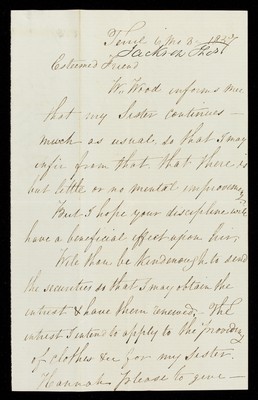 6 Mo 8 - 1857
Jackson Thos
Esteemed Friend
Wm Wood informs me
that my Sister continues -
much as usual, so that I may
infir from that, that there is
but little or no mental improvement
But I hope your discepline will
have a beneficial effect upon hir,
Wile thou be kind enough to send
the securities so that I may obtain the
intrest & have them renewed, The
intrest I intend to apply to the providing
of clothes &c for my Sister.
Hannah Please to give -